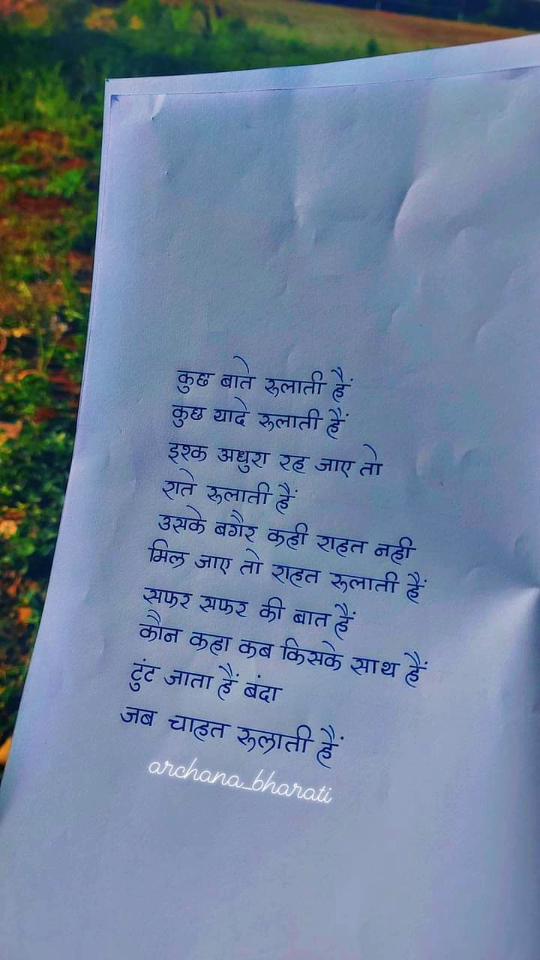 कुछ बाते रुलाती हैं
कुछ यादे रुलाती हैं
इश्क अधुरा रह जाए तो
राते रुलाती हैं
उसके बगैर कही राहत नही
मिल जाए तो राहत रुलाती हैं
सफर सफर की बात हैं
कौन कहा कब किसके साथ हैं
टुंट जाता हैं बंदा
जब चाहत रुलाती हैं
archana_bharati